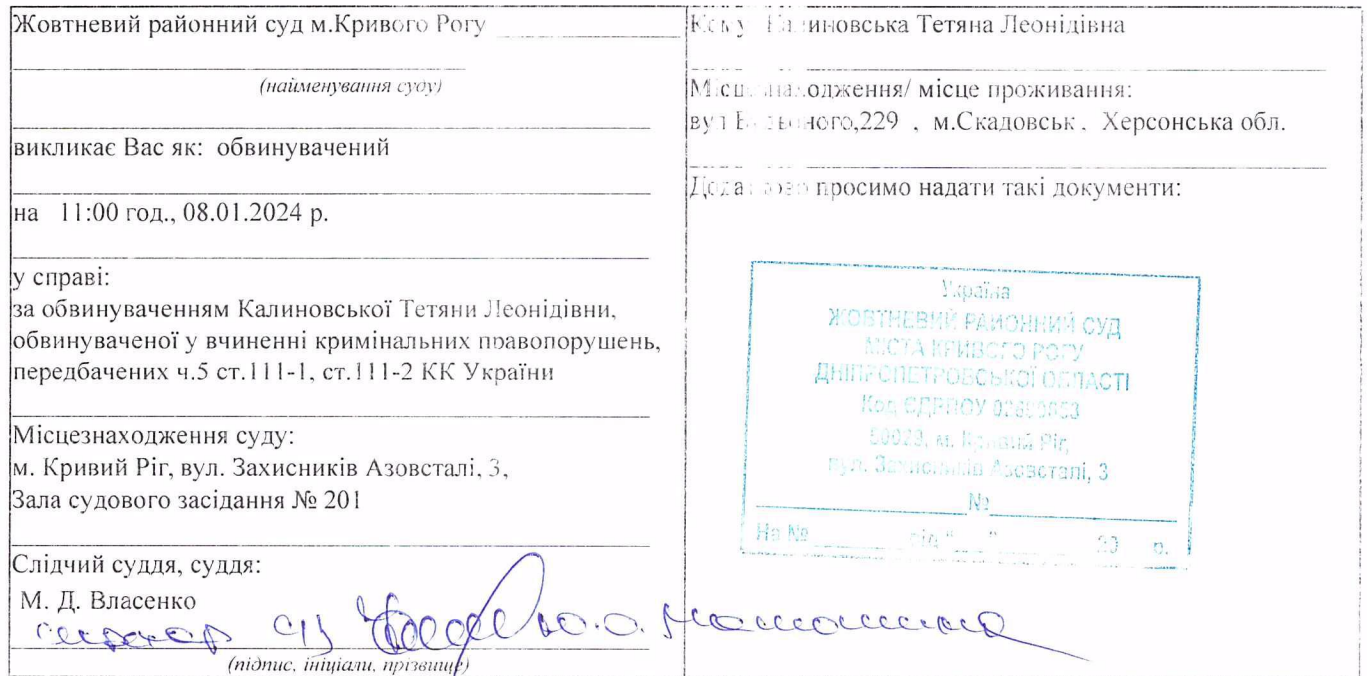 Жовтневий районний суд м.Кривого Рогу
(найменування суду)
викликає Вас як: обвинувачений
на 11:00 год., 08.01.2024 р.
у справі:
за обвинуваченням Калиновської Тетяни Леонідівни,
обвинуваченої у вчиненні кримінальних правопорушень,
передбачених ч.5 ст.111-1, ст.111-2 КК України
Місцезнаходження суду:
м. Кривий Ріг, вул. Захисників Азовсталі, 3,
Зала судового засідання № 201
Слідчий суддя, суддя:
М. Д. Власенко
секретар
(підпис, ініціали, прізвище)
Кому Калиновська Тетяна Леонідівна
Місцезнаходження/ місце проживання:
вул 229 , м.Скадовськ , Херсонська обл.
Додатково просимо надати такі документи:
Україна
ЖОВТНЕВИЙ РАЙОННИЙ СУД
МІСТА КРИВОГО РОГУ
ДНІПРОПЕТРОВСЬКОЇ ОБЛАСТІ
Код ЄДРПОУ
м. Кривий Ріг,
вул. Захисників Азовсталі, 3
№
На № від " " 20 р.